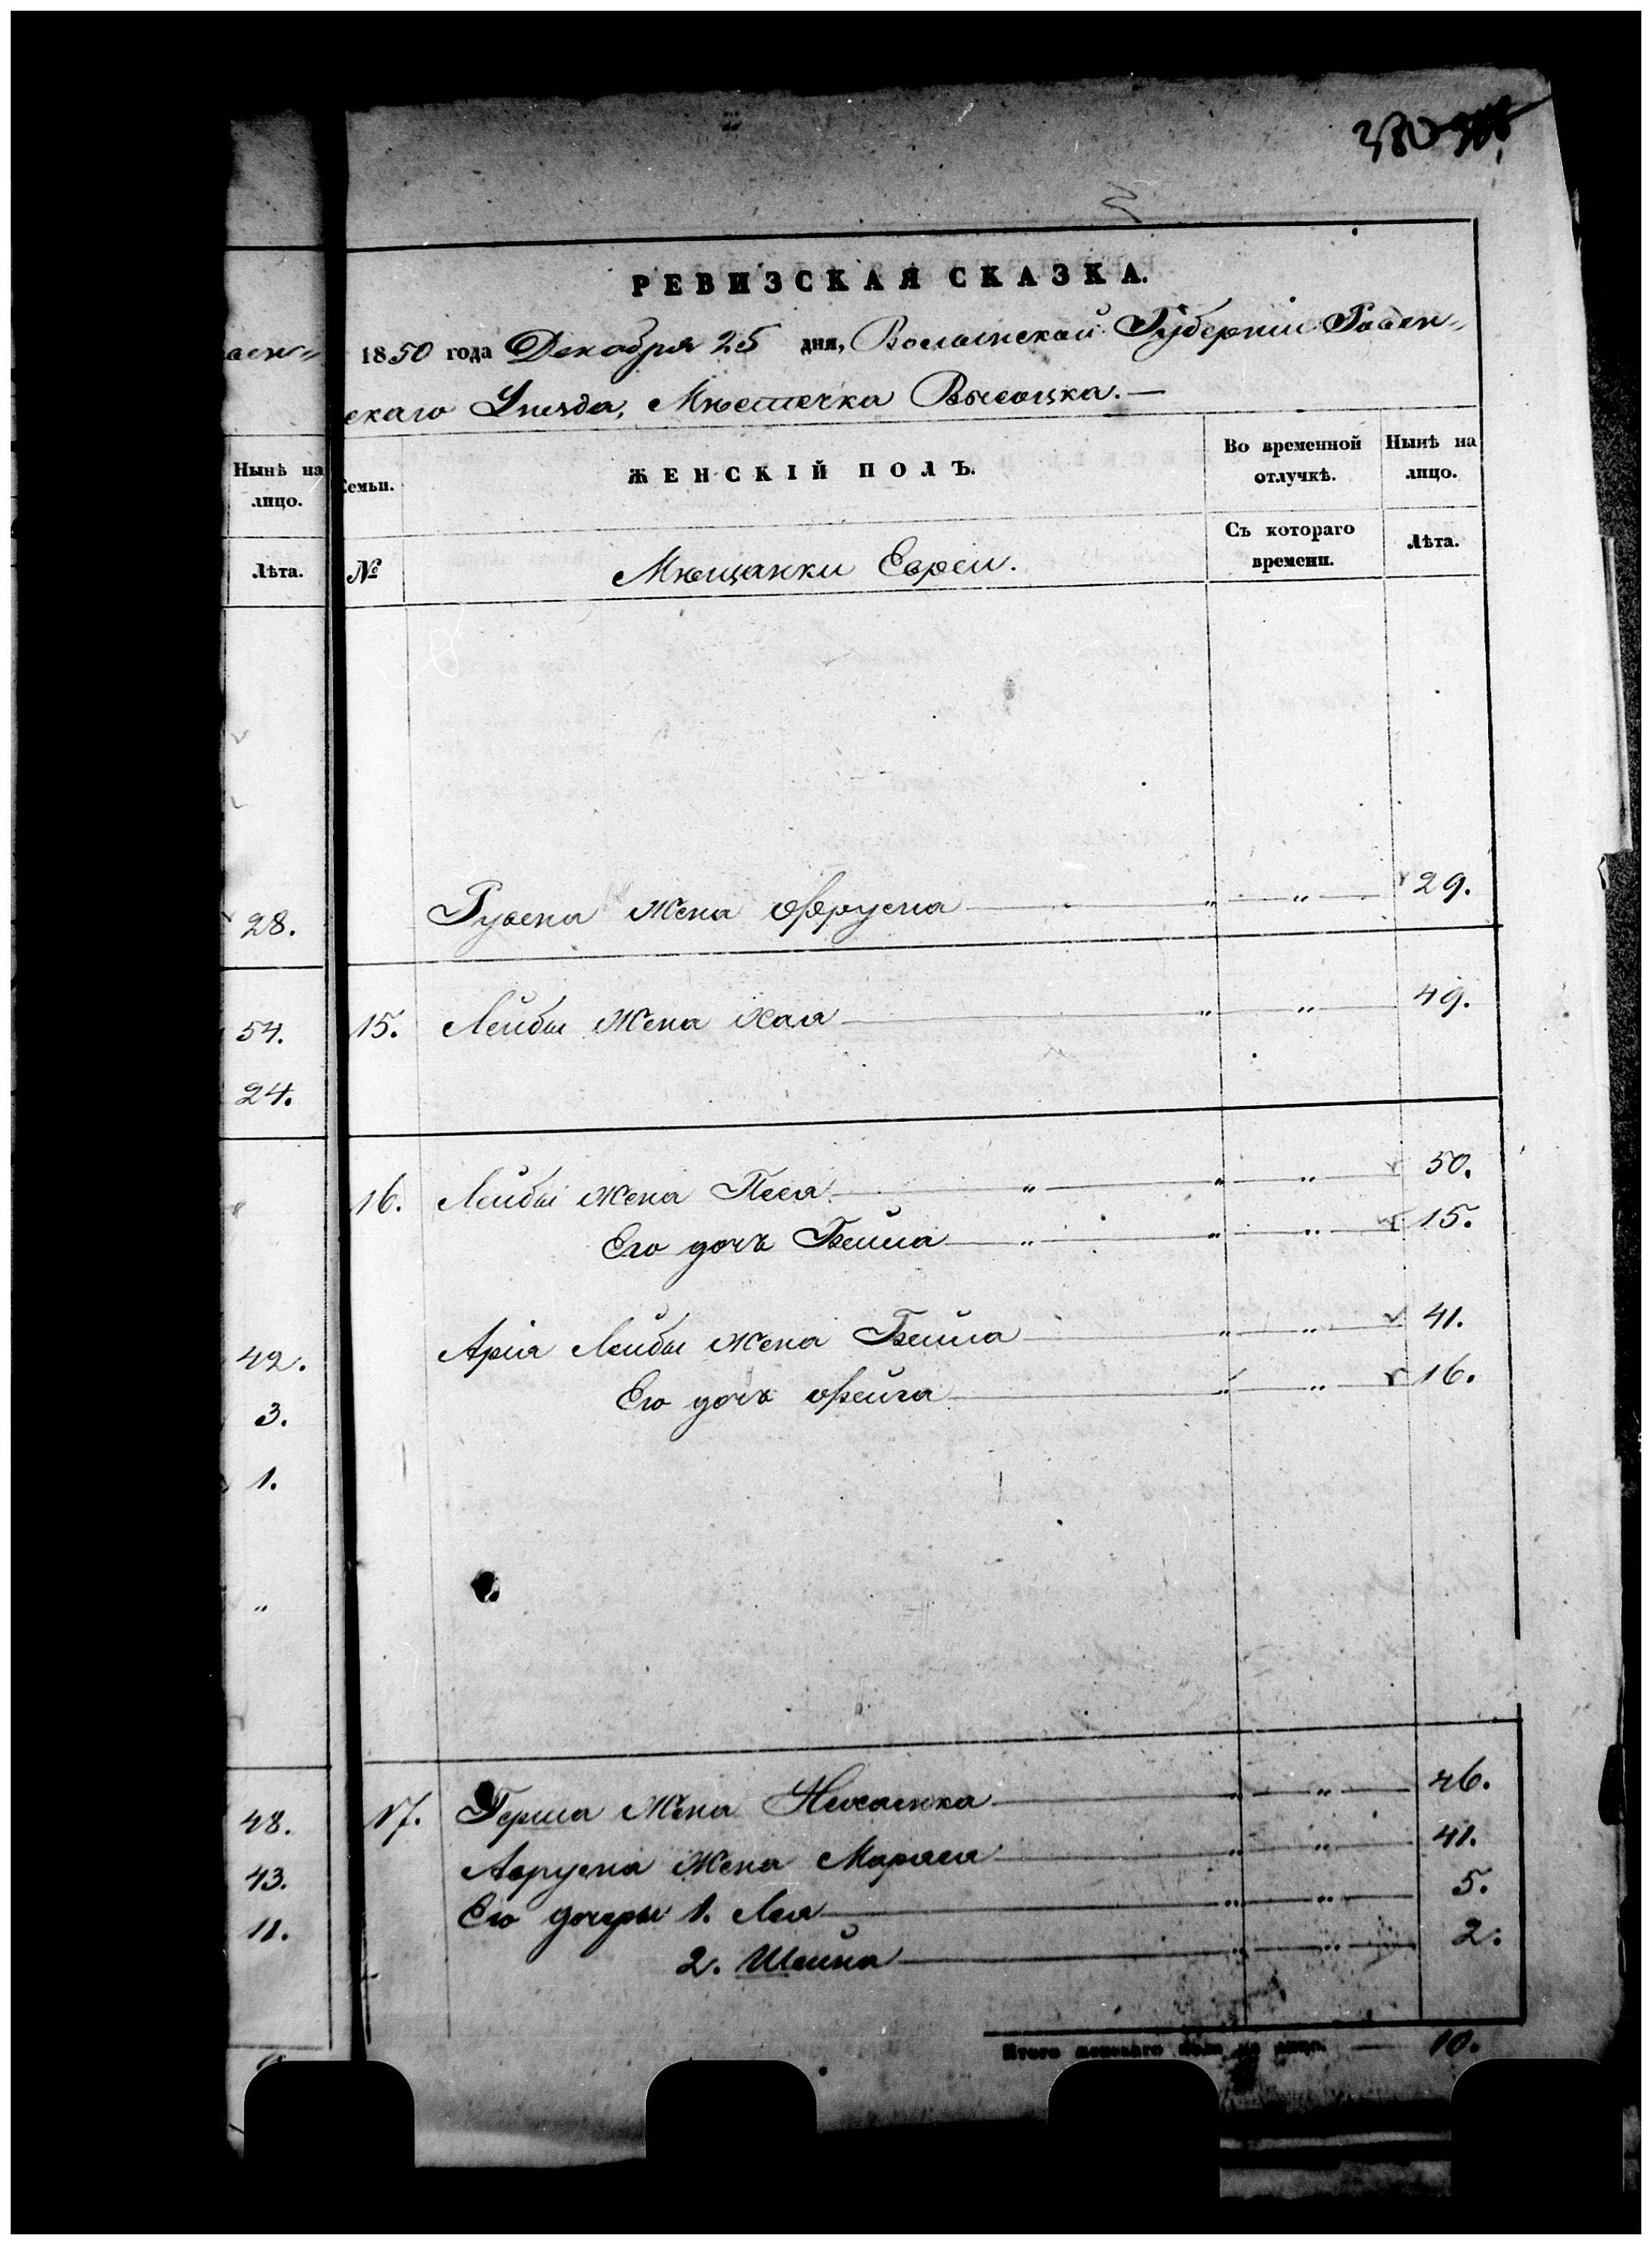 380
РЕВИЗСКАЯ СКАЗКА.
1850 года Декабря 25 дня, Волынской Губерніи Ровен-
скаго Уезда, Мѣстечка Высоцка.—
аен-
Нынѣ на лицо.
Лѣта.
28.
54.
24.
42.
3.
1.
„
48.
43.
11.
Семьи. ЖЕНСКІЙ ПОЛЪ. Во временной отлучкѣ. Нынѣ на лицо.
№ Мѣщанки Евреи. Съ котораго времени. Лѣта.
Рувена жена Фрума „ „ 29.
15. Лейбы жена Хая „ „ 49.
16. Лейбы жена Песя „ „ „ 50.
Его дочь Бейла „ „ „ 15.
Арія Лейбы жена Бейла „ „ 41.
Его дочь Фейга „ „ 16.
17. Герша жена „ „ 46.
жена „ „ 41.
Его дочери 1. Лея „ „ 5.
2. Шейна „ „ 2.
Итого женскаго пола на лицо. — 10.